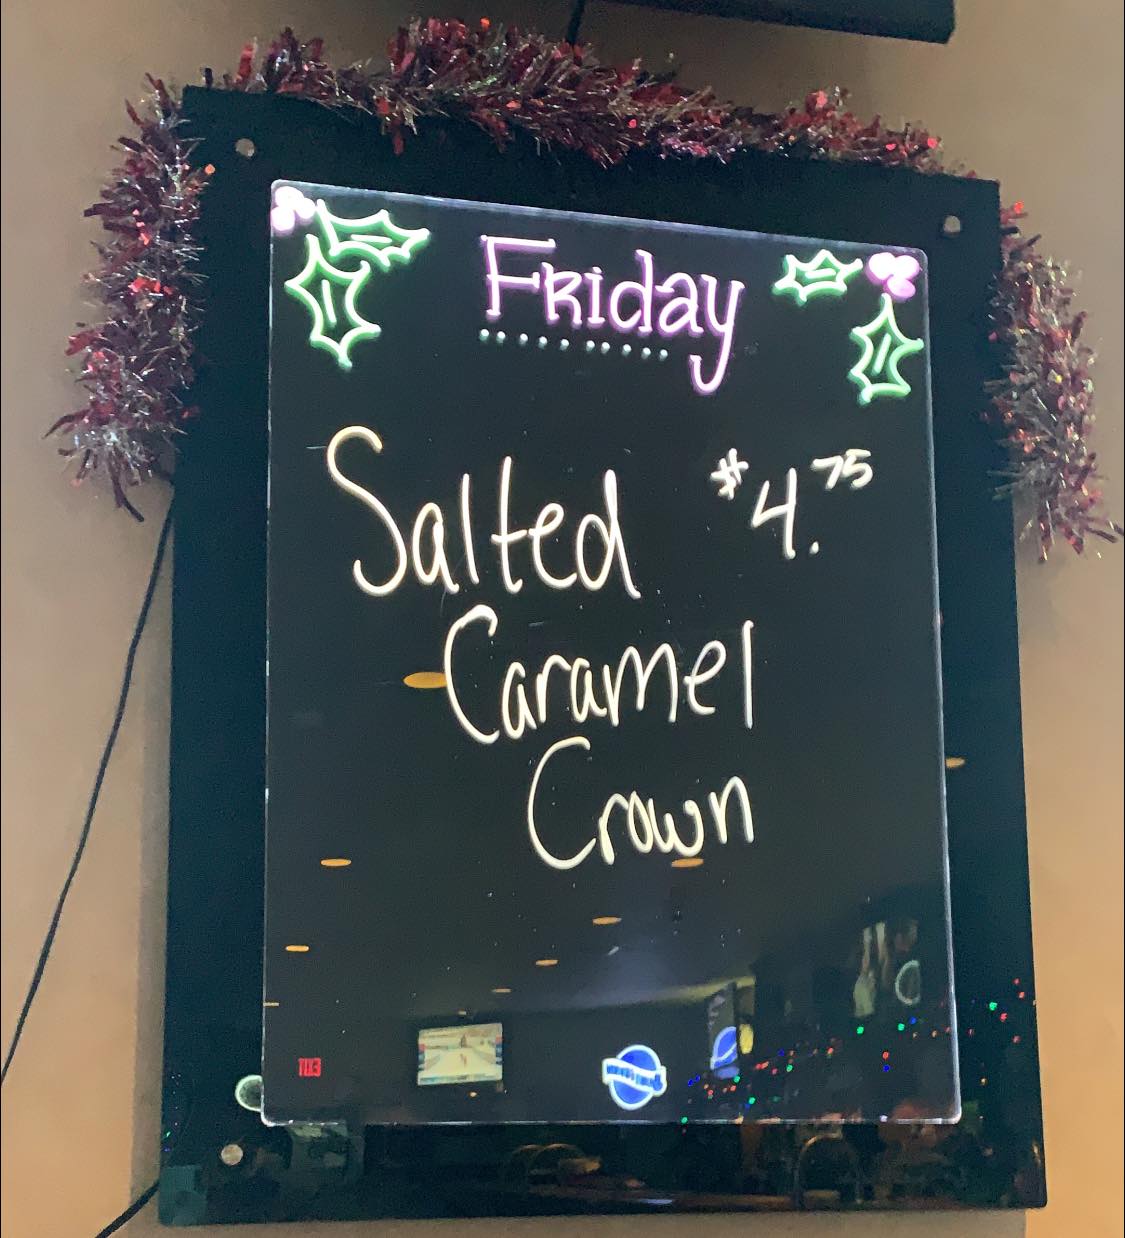 Friday
Salted $4.75
Caramel
Crown